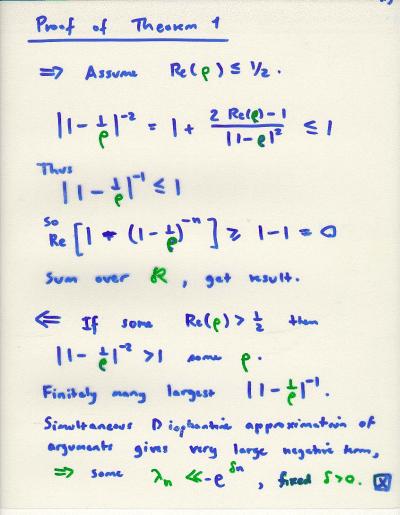 Proof of Theorem 1
⇒ Assume Re(ρ) ≤ 1/2.
|1 - 1/ρ|^{-2} = 1 + (2 Re(ρ) - 1)/|1 - ρ|^2 ≤ 1
Thus
|1 - 1/ρ|^{-1} ≤ 1
So
Re [1 - (1 - 1/ρ)^{-n}] ≥ 1 - 1 = 0
Sum over R, get result.
⇐ If some Re(ρ) > 1/2 then
|1 - 1/ρ|^{-2} > 1 some ρ.
Finitely many largest |1 - 1/ρ|^{-1}.
Simultaneous Diophantine approximation of
arguments gives very large negative term,
⇒ some λ_n ≪ -e^{δn}, fixed δ > 0. ☒